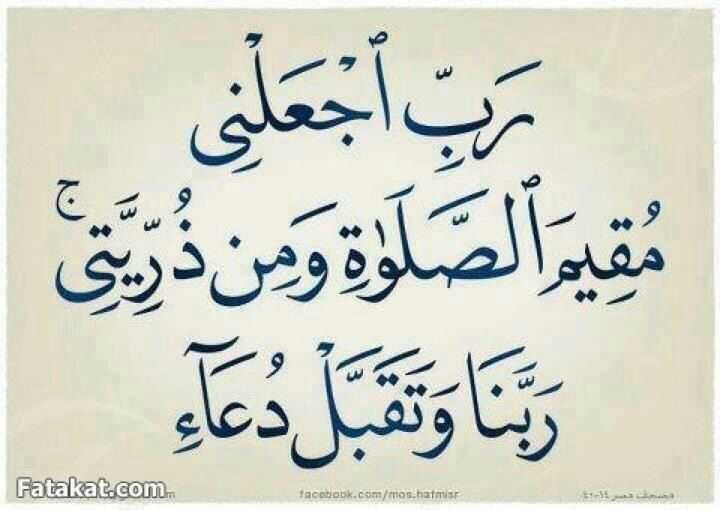 رَبِّ ٱجْعَلْنِى
مُقِيمَ ٱلصَّلَوٰةِ وَمِن ذُرِّيَّتِى ۚ
رَبَّنَا وَتَقَبَّلْ دُعَآءِ
Fatakat.com
facebook.com/mos.hafmisr
مصحف مصر ١٤-٤٠